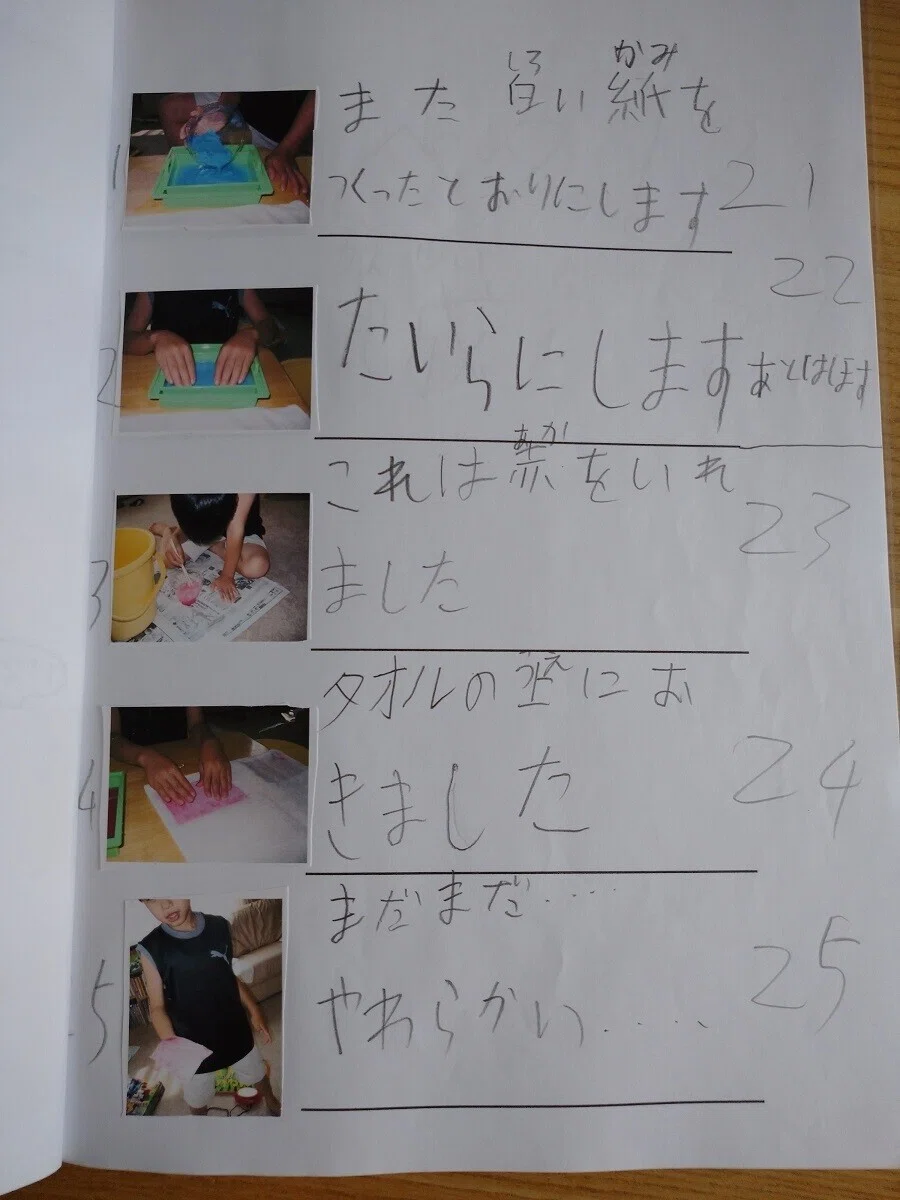 1
しろ かみ
また白い紙を
つくったとおりにします 21
2
22
たいらにします あとはほす
3
あか
これは赤をいれ
ました 23
4
うえ
タオルの上にお
きました 24
5
まだまだ・・・・・
やわらかい・・・・・ 25